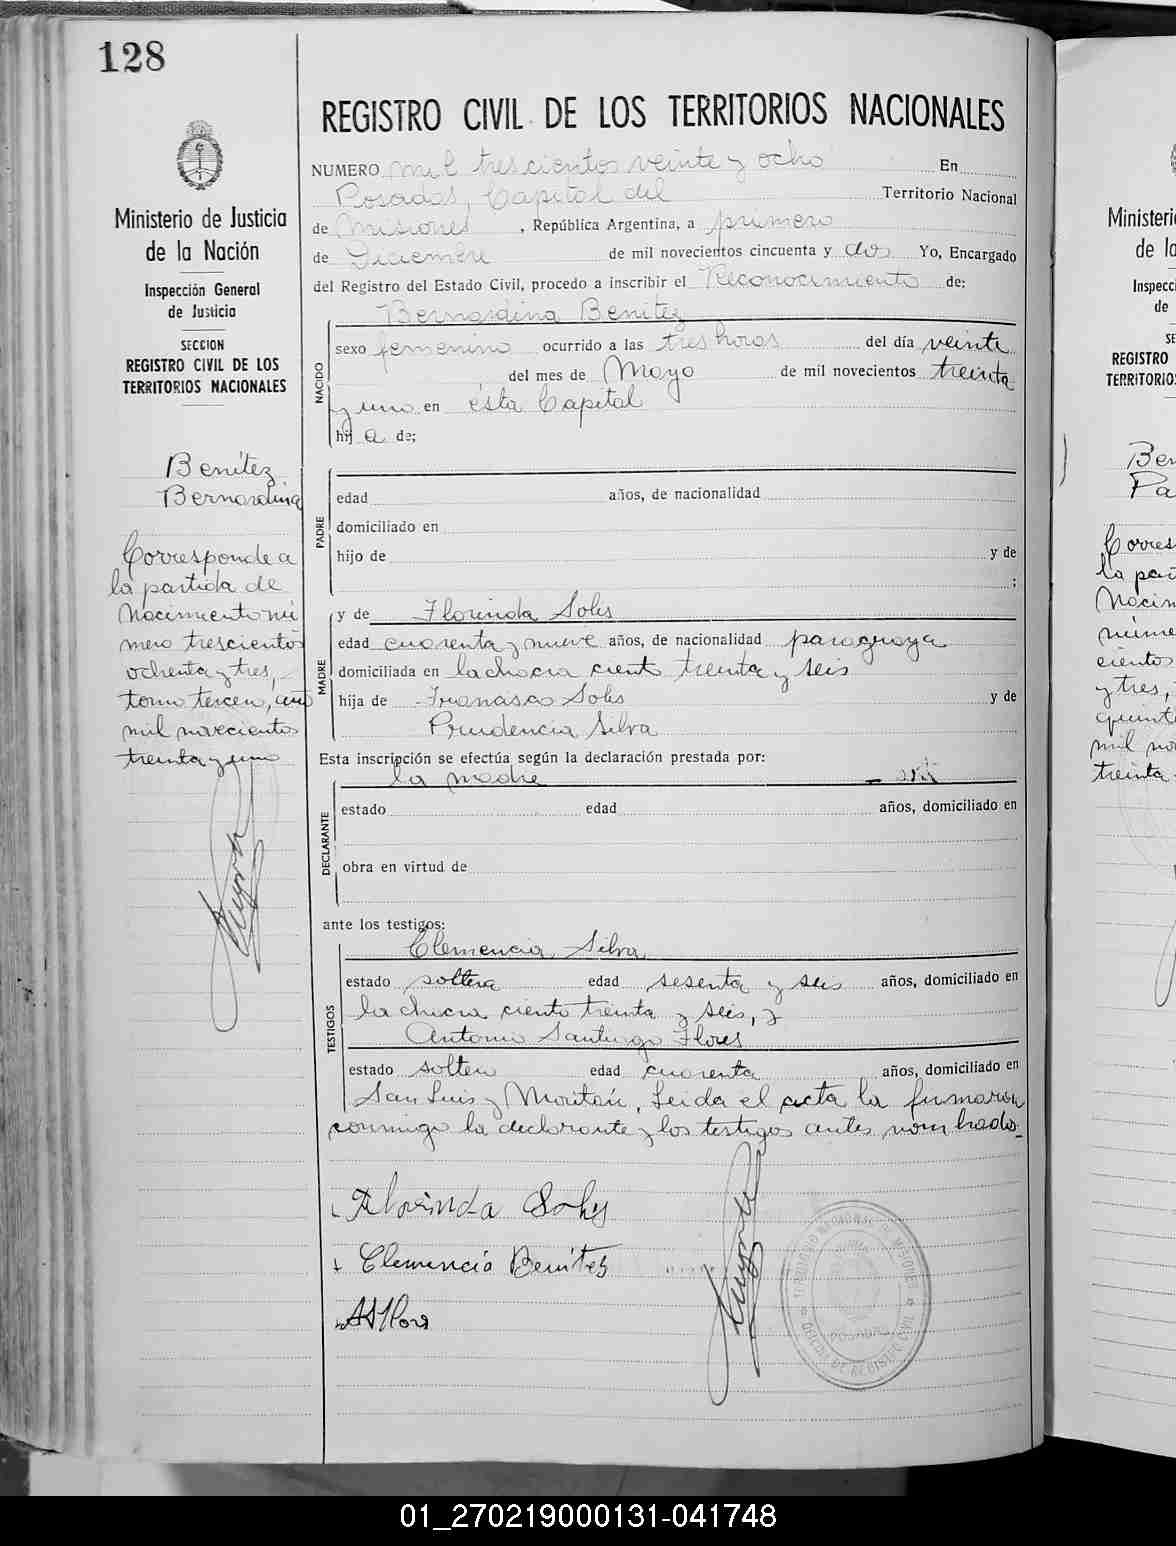 128
REGISTRO CIVIL DE LOS TERRITORIOS NACIONALES
Ministerio de Justicia
de la Nación
Inspección General
de Justicia
SECCION
REGISTRO CIVIL DE LOS
TERRITORIOS NACIONALES
Benítez
Bernardina
Corresponde a
la partida de
Nacimiento nú
mero trescientos
ochenta y tres,
tomo tercero, año
mil novecientos
treinta y uno
NUMERO mil trescientos veinte y ocho En
Posadas, Capital del Territorio Nacional
de Misiones, República Argentina, a primero
de Diciembre de mil novecientos cincuenta y dos Yo, Encargado
del Registro del Estado Civil, procedo a inscribir el Reconocimiento de:
NACIDO
Bernardina Benitez
sexo femenino ocurrido a las tres horas del día veinte
del mes de Mayo de mil novecientos treinta
y uno en ésta Capital
hij a de;
PADRE
edad años, de nacionalidad
domiciliado en
hijo de y de
;
MADRE
y de Florinda Solis
edad cuarenta y nueve años, de nacionalidad paraguaya
domiciliada en la chacra ciento treinta y seis
hija de Francisco Solis y de
Prudencia Silva
Esta inscripción se efectúa según la declaración prestada por:
DECLARANTE
la madre
estado edad años, domiciliado en
obra en virtud de
ante los testigos:
TESTIGOS
Clemencia Silva
estado soltera edad sesenta y seis años, domiciliado en
la chacra ciento treinta y seis, y
Antonio Santiago Flores
estado soltero edad cuarenta años, domiciliado en
San Luis y Moritán, Leida el acta la firmaron
conmigo la declarante y los testigos antes nombrados
Florinda Solis
Clemencia Benites
ASFlores
TERRITORIO NACIONAL DE MISIONES
POSADAS
OFICINA DE REGISTRO CIVIL
Ministeri
de la
Inspecc
de
SE
REGISTRO
TERRITORIOS
Ben
Pa
Corres
la part
Nacim
núme
cientos
y tres,
quint
mil no
treinta
01_270219000131-041748